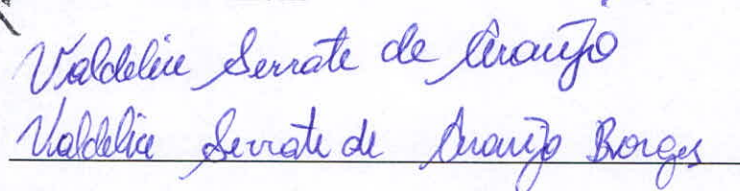 Valdelice Serrate de Araújo
Valdelice Serrate de Araújo Borges